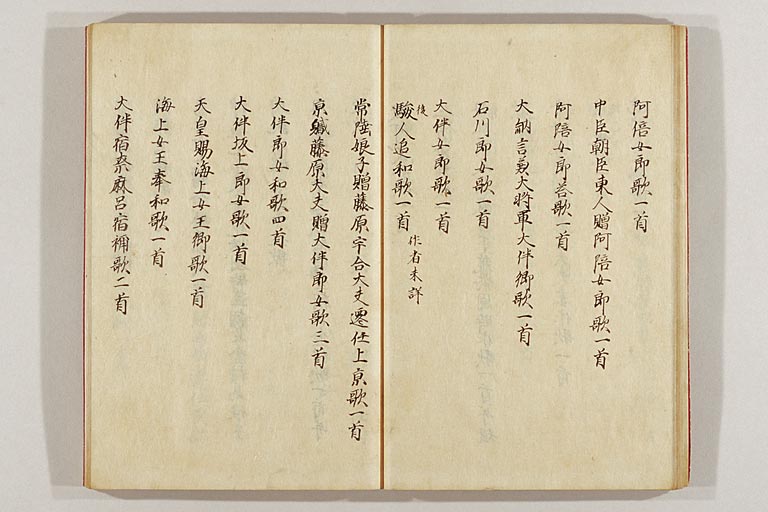 阿倍女郎歌一首
中臣朝臣東人贈阿陪女郎歌一首
阿陪女郎荅歌一首
大納言兼大将軍大伴卿歌一首
石川郎女歌一首
大伴女郎歌一首
後
駿人追和歌一首 作者未詳
常陸娘子贈藤原宇合大夫遷任上京歌一首
京職藤原大夫贈大伴郎女歌三首
大伴郎女和歌四首
大伴坂上郎女歌一首
天皇賜海上女王御歌一首
海上女王奉和歌一首
大伴宿奈麻呂宿祢歌二首